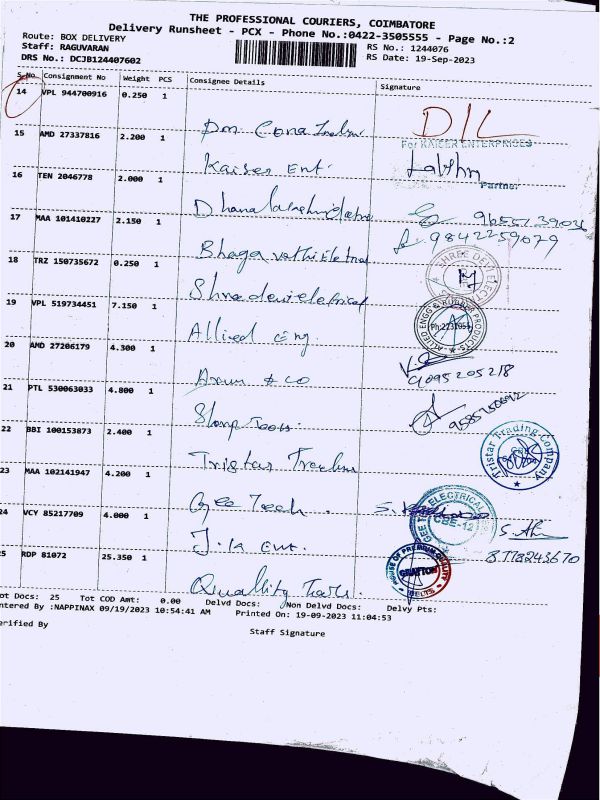 THE PROFESSIONAL COURIERS, COIMBATORE
Delivery Runsheet - PCX - Phone No.:0422-3505555 - Page No.:2
Route: BOX DELIVERY
Staff: RAGUVARAN
DRS No.: DCJB124407602
RS No.: 1244076
RS Date: 19-Sep-2023
S.No. Consignment No Weight PCS Consignee Details Signature
14 VPL 944700916 0.250 1
D/L
15 AMD 27337816 2.200 1
For KAISER ENTERPRISES
Kaiser Ent.
Partner
16 TEN 2046778 2.000 1
17 MAA 101410227 2.150 1
9842259079
Bhagavathi Eletrical
18 TRZ 150735672 0.250 1
SHREE DEVI ELECTRICAL
Shree devi eletrical
19 VPL 519734451 7.150 1
ALLIED ENGG & RUBBER PRODUCTS
Allied eng
20 AMD 27206179 4.300 1
Arun & co
9095205218
21 PTL 530063033 4.800 1
22 BBI 100153873 2.400 1
Tristar Trading Company
Tristar Trading
23 MAA 102141947 4.200 1
Gee Teech.
GEE TECH ELECTRICAL
CBE-12
24 VCY 85217709 4.000 1
J.K Ent.
25 RDP 81072 25.350 1
HOUSE OF PREMIUM QUALITY
GRAFTON
BELTS
Quallity Tools.
ot Docs: 25 Tot COD Amt: 0.00 Delvd Docs: Non Delvd Docs: Delvy Pts:
ntered By :NAPPINAX 09/19/2023 10:54:41 AM Printed On: 19-09-2023 11:04:53
erified By
Staff Signature